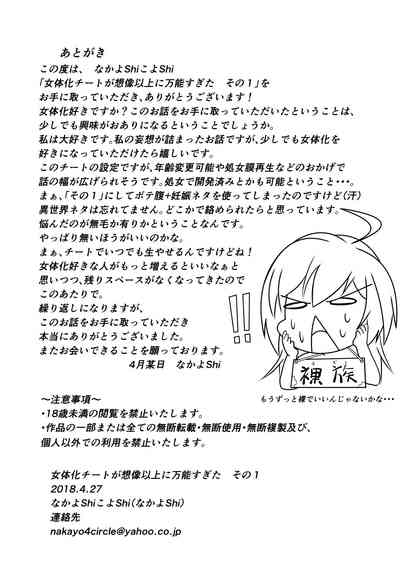 あとがき
この度は、 なかよShiこよShi
「女体化チートが想像以上に万能すぎた その１」を
お手に取っていただき、ありがとうございます！
女体化好きですか？このお話をお手に取っていただいたということは、
少しでも興味がおありになるということでしょうか。
私は大好きです。私の妄想が詰まったお話ですが、少しでも女体化を
好きになっていただけたら嬉しいです。
このチートの設定ですが、年齢変更可能や処女膜再生などのおかげで
話の幅が広げられそうです。処女で開発済みとかも可能ということ・・・。
まぁ、「その１」にしてボテ腹+妊娠ネタを使ってしまったのですけど(汗)
異世界ネタは忘れてません。どこかで絡められたらと思っています。
悩んだのが無毛か有りかということなんです。
やっぱり無いほうがいいのかな。
まぁ、チートでいつでも生やせるんですけどね！
女体化好きな人がもっと増えるといいなぁと
思いつつ、残りスペースがなくなってきたので
このあたりで。
繰り返しになりますが、
このお話をお手に取っていただき
本当にありがとうございました。
またお会いできることを願っております。
4月某日 なかよShi
!!
裸族
もうずっと裸でいいんじゃないかな・・・
～注意事項～
・18歳未満の閲覧を禁止いたします。
・作品の一部または全ての無断転載・無断使用・無断複製及び、
個人以外での利用を禁止いたします。
女体化チートが想像以上に万能すぎた その１
2018.4.27
なかよShiこよShi（なかよShi）
連絡先
nakayo4circle@yahoo.co.jp